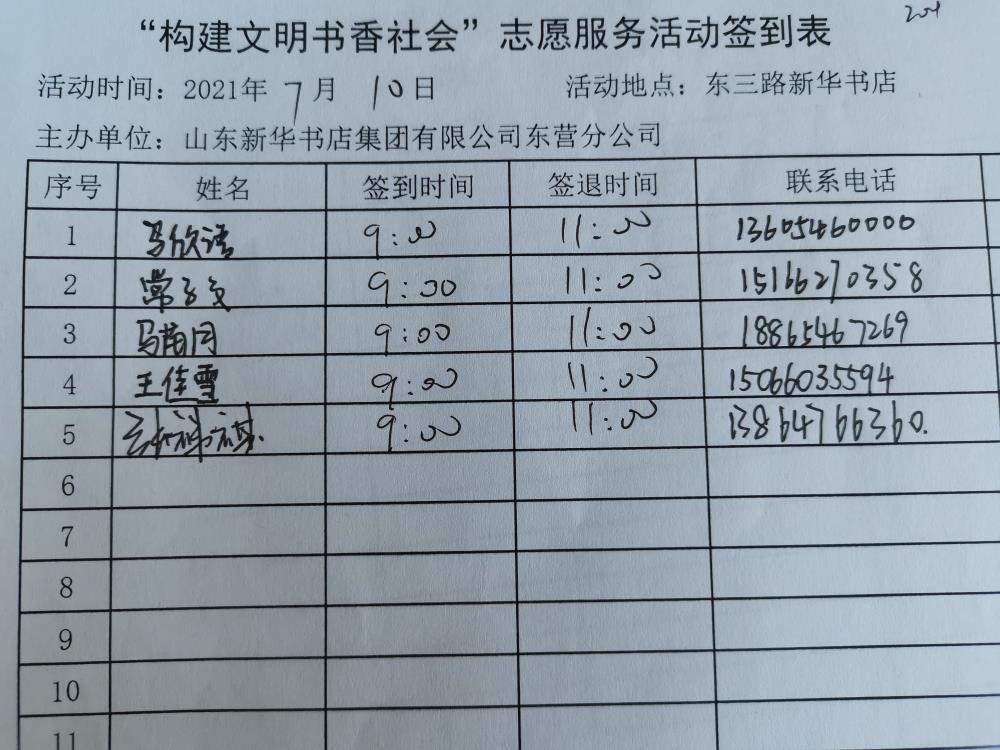 “构建文明书香社会”志愿服务活动签到表
活动时间：2021年 7月 10日 活动地点：东三路新华书店
主办单位：山东新华书店集团有限公司东营分公司
序号 姓名 签到时间 签退时间 联系电话
1 马欣语 9:00 11:00 13605460000
2 9:00 11:00 15166270358
3 9:00 11:00 18865467269
4 王佳雪 9:00 11:00 15066035594
5 9:00 11:00 13864766360.
6
7
8
9
10
11